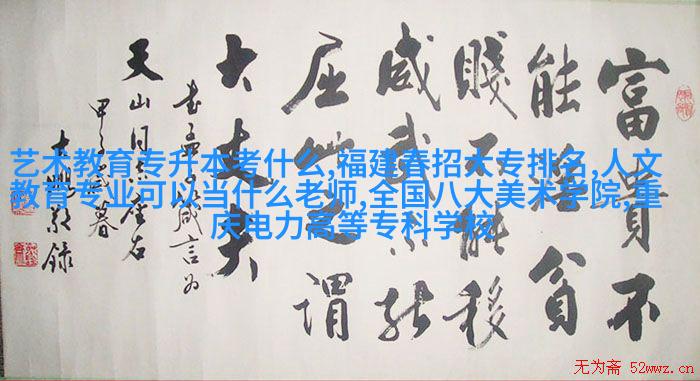 富貴不
能淫貧
賤不能移
威武不能
屈此之謂
大丈夫
書孟子箴言为
天山同志座右
甲子歲暮
艺术教育专升本考什么,福建春招大专排名,人文
教育专业可以当什么老师,全国八大美术学院,重
庆电力高等专科学校
无为斋 52wwz.cn